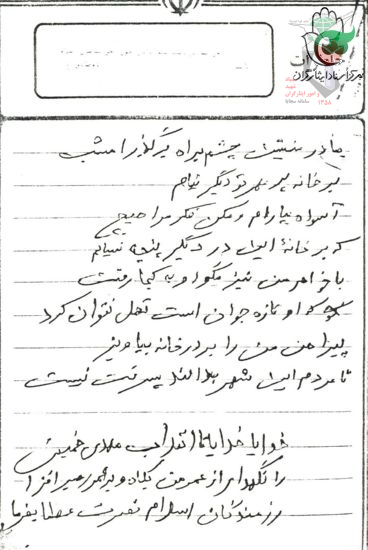 مادر منشین چشم براه گذر امشب
بر خانه پر مهر تو دیگر نیایم
آسوده بیارام و مکن فکر مرا هیچ
که بر خانه این در دیگر پنجه نسایم
با خواهر من نیز مگو او به کجا رفت
که او تازه جوان است تحمل نتوان کرد
پیراهن من را بر در خانه بیاویز
تا مردم این شهر بدانند پسرت نیست
خدایا خدایا تا انقلاب مهدی خمینی
را نگهدار از عمر من بکاه و بر عمر رهبر افزا
رزمندگان اسلام نصرت عطا بفرما
مرکز اسناد ایثارگران